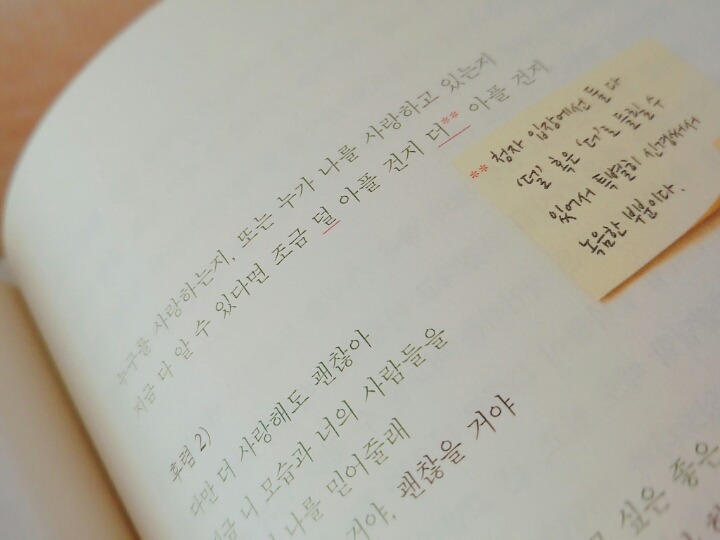 누구를 사랑하는지, 또는 누가 나를 사랑하고 있는지
지금 다 알 수 있다면 조금 덜 아플 건지 더** 아플 건지
** 청자 입장에선 둘 다
'덜' 혹은 '더'로 들릴 수
있어서 특별히 신경써서
녹음한 부분이다.
후렴 2)
다만 더 사랑해도 괜찮아
지금 니 모습과 너의 사람들을
나를 믿어줄래
거야, 괜찮을 거야
싶은 좋은